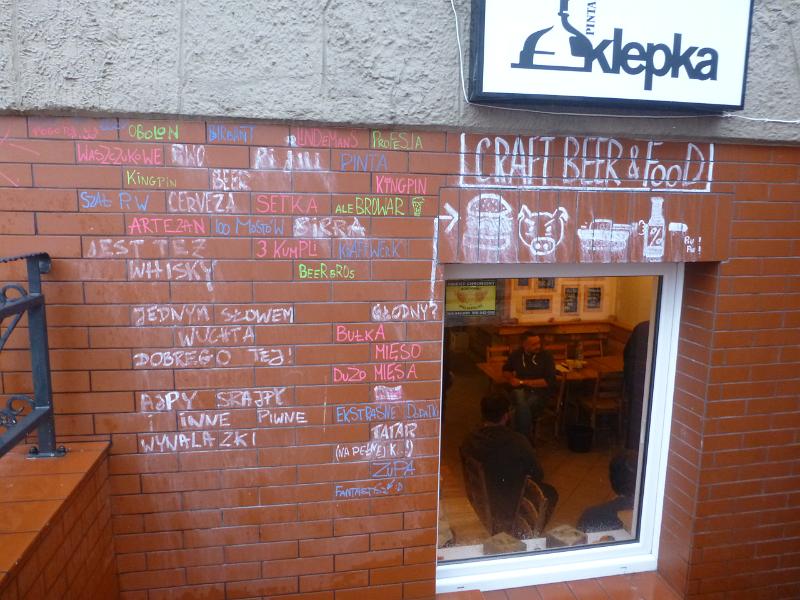 PINTA
klepka
OBOLON LINDEMANS PROFESJA
WASZCZUKOWE PIWO PIJUU PINTA
KINGPIN BEER KINGPIN
SZAŁ PIW CERVEZA SETKA ALEBROWAR
ARTEZAN 100 MOSTÓW BIRRA
JEST TEŻ 3 KUMPLI KRAFTWERK
WHISKY BEER BROS
JEDNYM SŁOWEM
WUCHTA
DOBREGO TEJ!
AJPY SRAJPY
I INNE PIWNE
WYNALAZKI
GŁODNY?
BUŁKA
MIĘSO
DUŻO MIĘSA
EKSTRAŚNE DODATKI
TATAR
(NA PEŁNEJ K...)
ZUPA
CRAFT BEER & FOOD
%